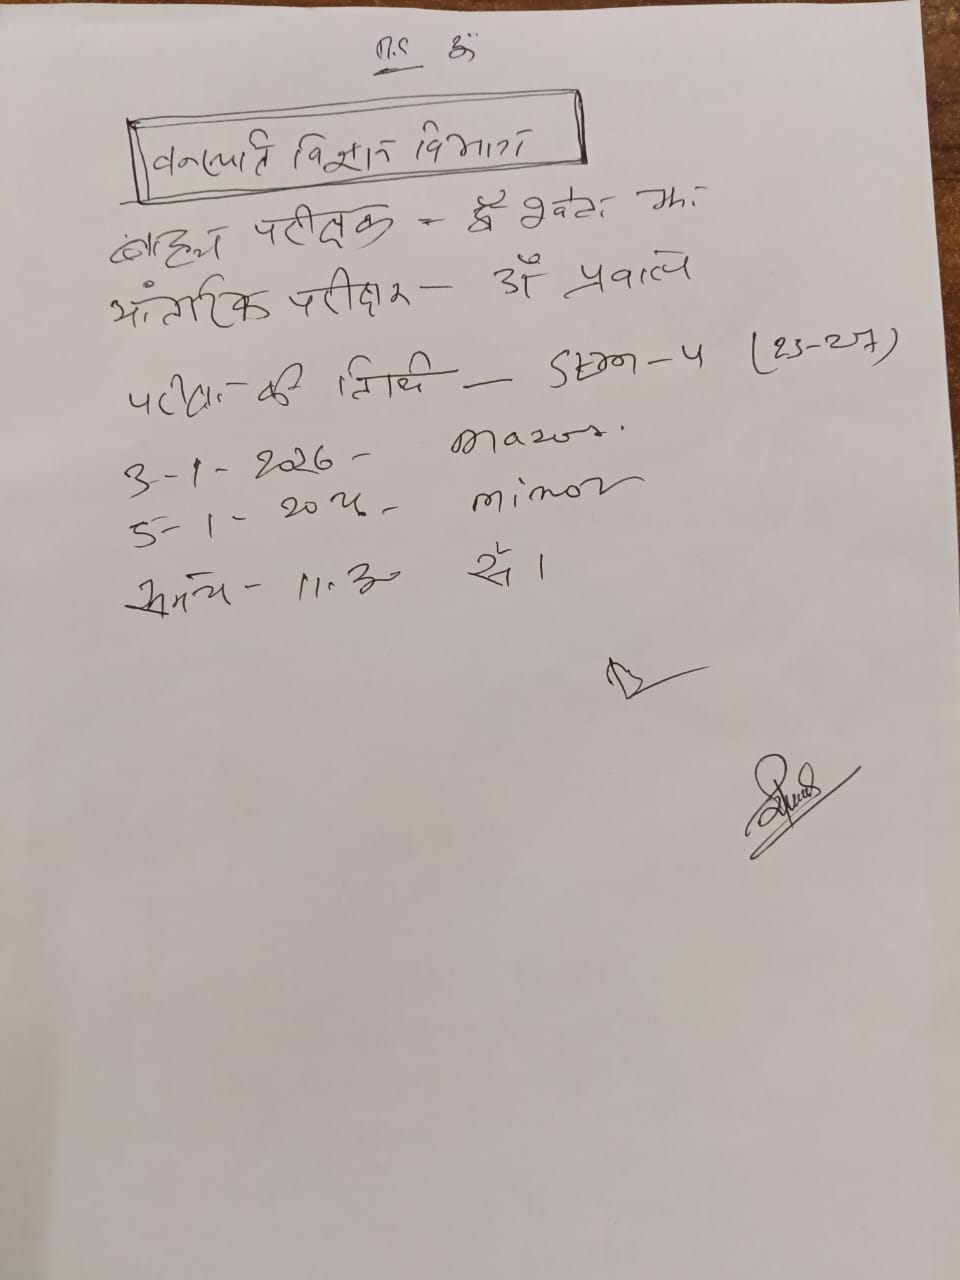 वनस्पति विज्ञान विभाग
बाह्य परीक्षक - डॉ श्वेता झा
आंतरिक परीक्षक - डॉ
परीक्षा की तिथी - SEM-4 (23-27)
3-1-2026 -
5-1-2026 - minor
समय - 11.30 से।